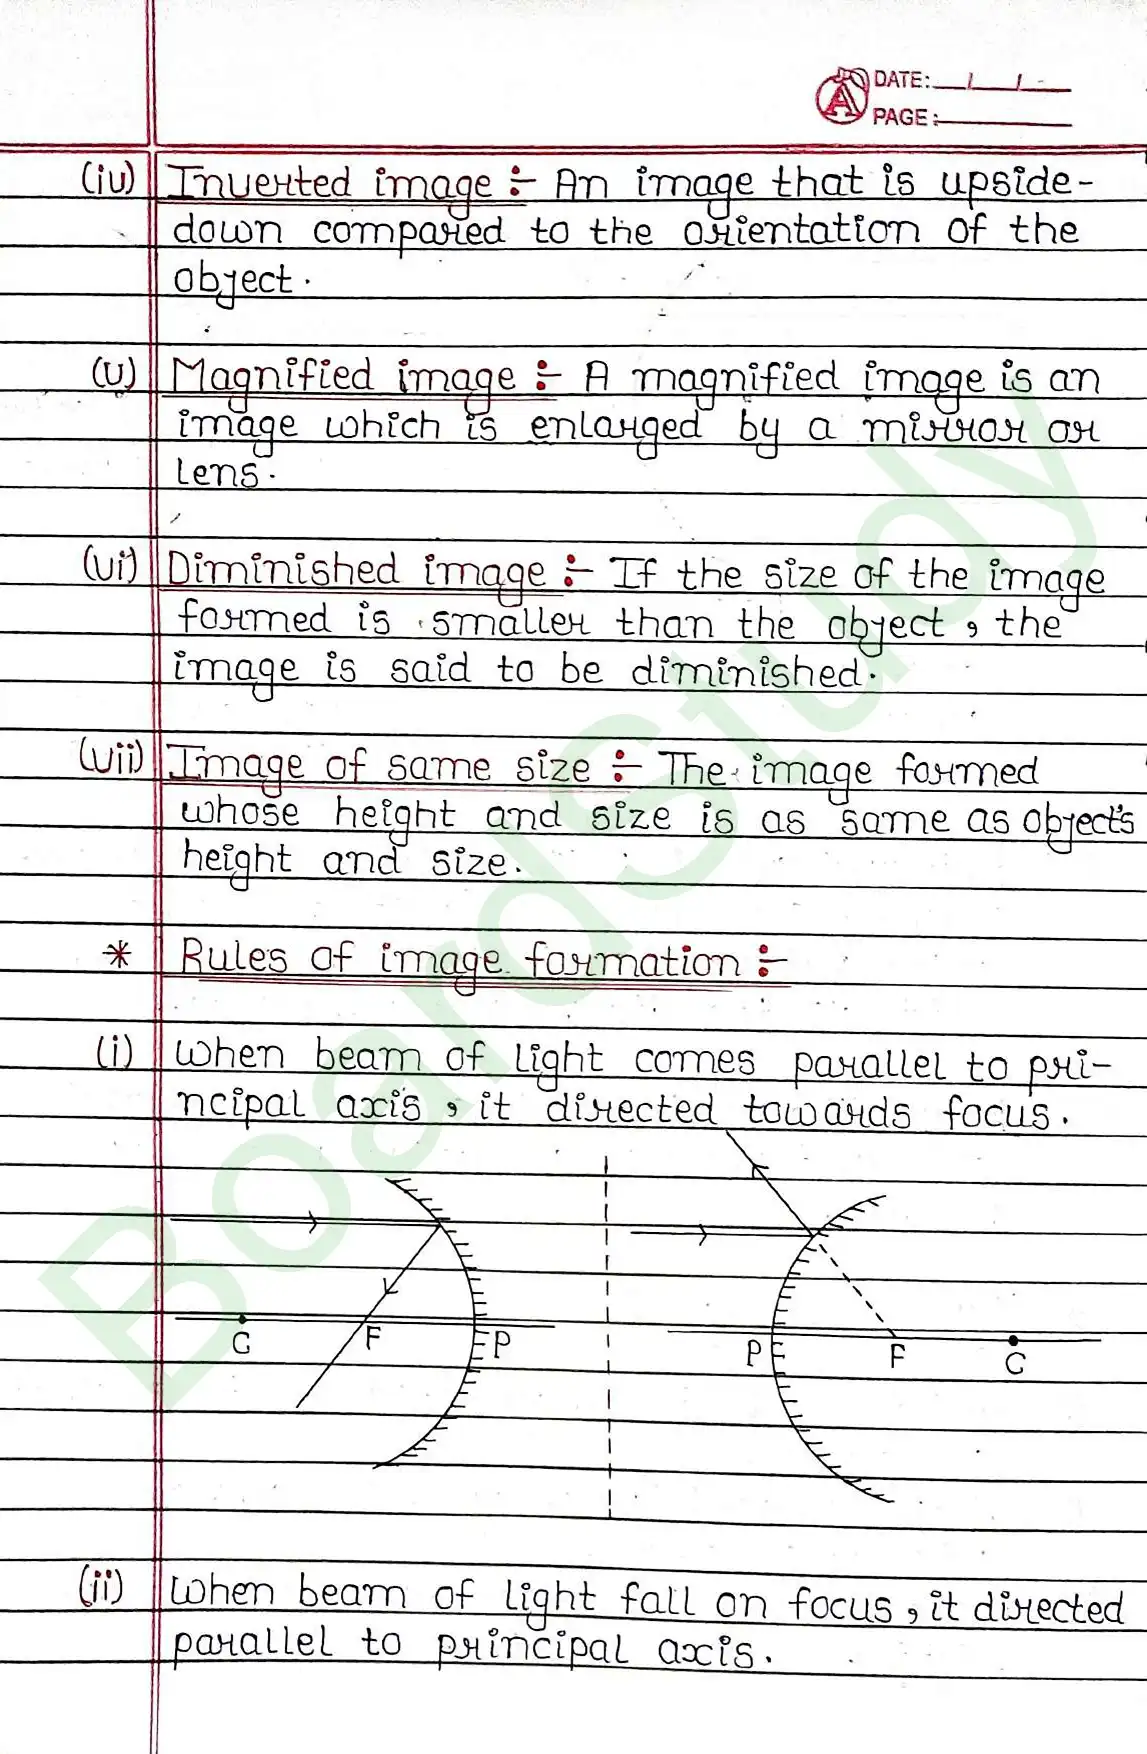 DATE: / /
PAGE:
(iv) Inverted image :- An image that is upside-
down compared to the orientation of the
object.
(v) Magnified image :- A magnified image is an
image which is enlarged by a mirror or
lens.
(vi) Diminished image :- If the size of the image
formed is smaller than the object, the
image is said to be diminished.
(vii) Image of same size :- The image formed
whose height and size is as same as object's
height and size.
* Rules of image formation :-
(i) When beam of light comes parallel to pri-
ncipal axis, it directed towards focus.
C F P P F C
(ii) When beam of light fall on focus, it directed
parallel to principal axis.
BoardStudy